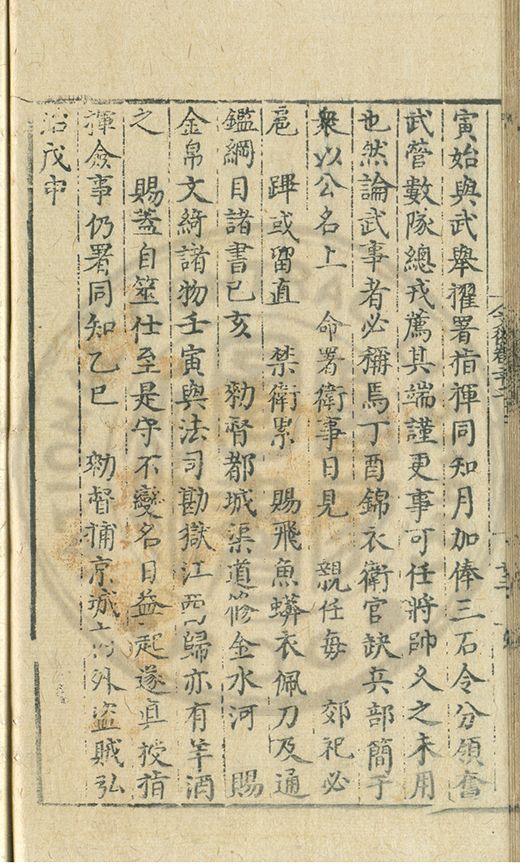 寅始與武舉擢署指揮同知月加俸三石令分領奮
武營數隊總戎薦其端謹更事可任將帥久之未用
也然論武事者必稱焉丁酉錦衣衛官缺兵部簡于
衆以公名上　命署衛事日見　親任每　郊祀必
扈　蹕或留直　禁衛累　賜飛魚蟒衣佩刀及通
鑑綱目諸書己亥　勑督都城渠道修金水河　賜
金帛文綺諸物壬寅與法司勘獄江西歸亦有羊酒
之　賜蓋自筮仕至是守不變名日益起遂真授指
揮僉事仍署同知乙巳　勑督捕京城內外盜賊弘
治戊申